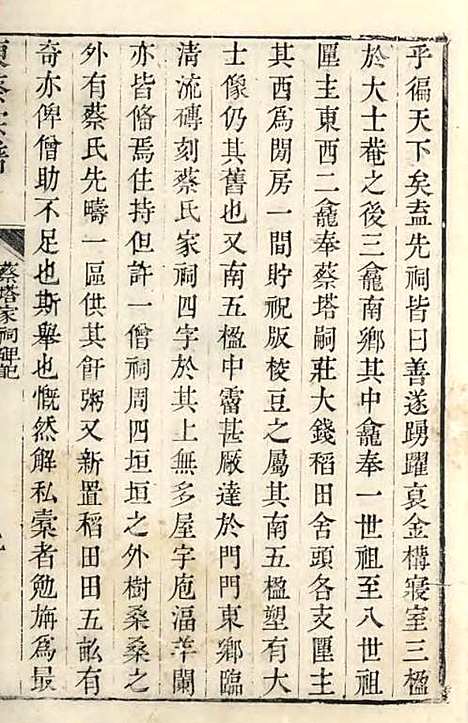 乎徧天下矣盍先祠皆曰善遂踴躍裒金構寢室三楹
於大士菴之後三龕南鄉其中龕奉一世祖至八世祖
匰主東西二龕奉蔡塔嗣莊大錢稻田舍頭各支匰主
其西爲閒房一間貯祝版梭豆之屬其南五楹塑有大
士像仍其舊也又南五楹中霤甚厰達於門門東鄉臨
清流磚刻蔡氏家祠四字於其上無多屋字庖湢荓闌
亦皆俻焉住持但許一僧祠周四垣垣之外樹桑桑之
外有蔡氏先疇一區供其飦粥又新置稻田田五畝有
奇亦俾僧助不足也斯舉也慨然解私橐者勉旃爲最
蔡塔家祠碑記